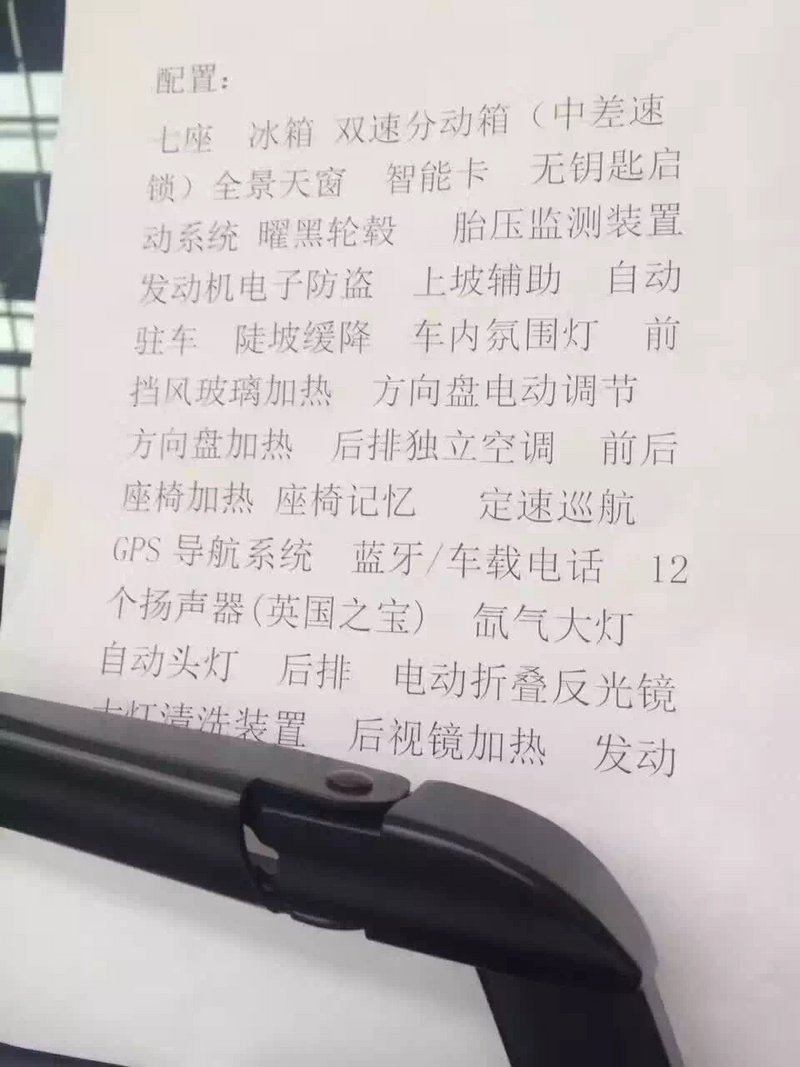 配置：
七座 冰箱 双速分动箱（中差速
锁）全景天窗 智能卡 无钥匙启
动系统 曜黑轮毂 胎压监测装置
发动机电子防盗 上坡辅助 自动
驻车 陡坡缓降 车内氛围灯 前
挡风玻璃加热 方向盘电动调节
方向盘加热 后排独立空调 前后
座椅加热 座椅记忆 定速巡航
GPS 导航系统 蓝牙/车载电话 12
个扬声器(英国之宝) 氙气大灯
自动头灯 后排 电动折叠反光镜
大灯清洗装置 后视镜加热 发动